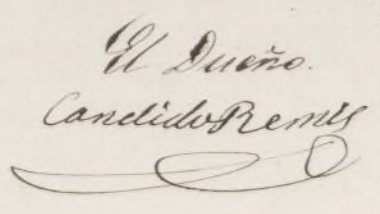 El Dueño.
Candido Remis